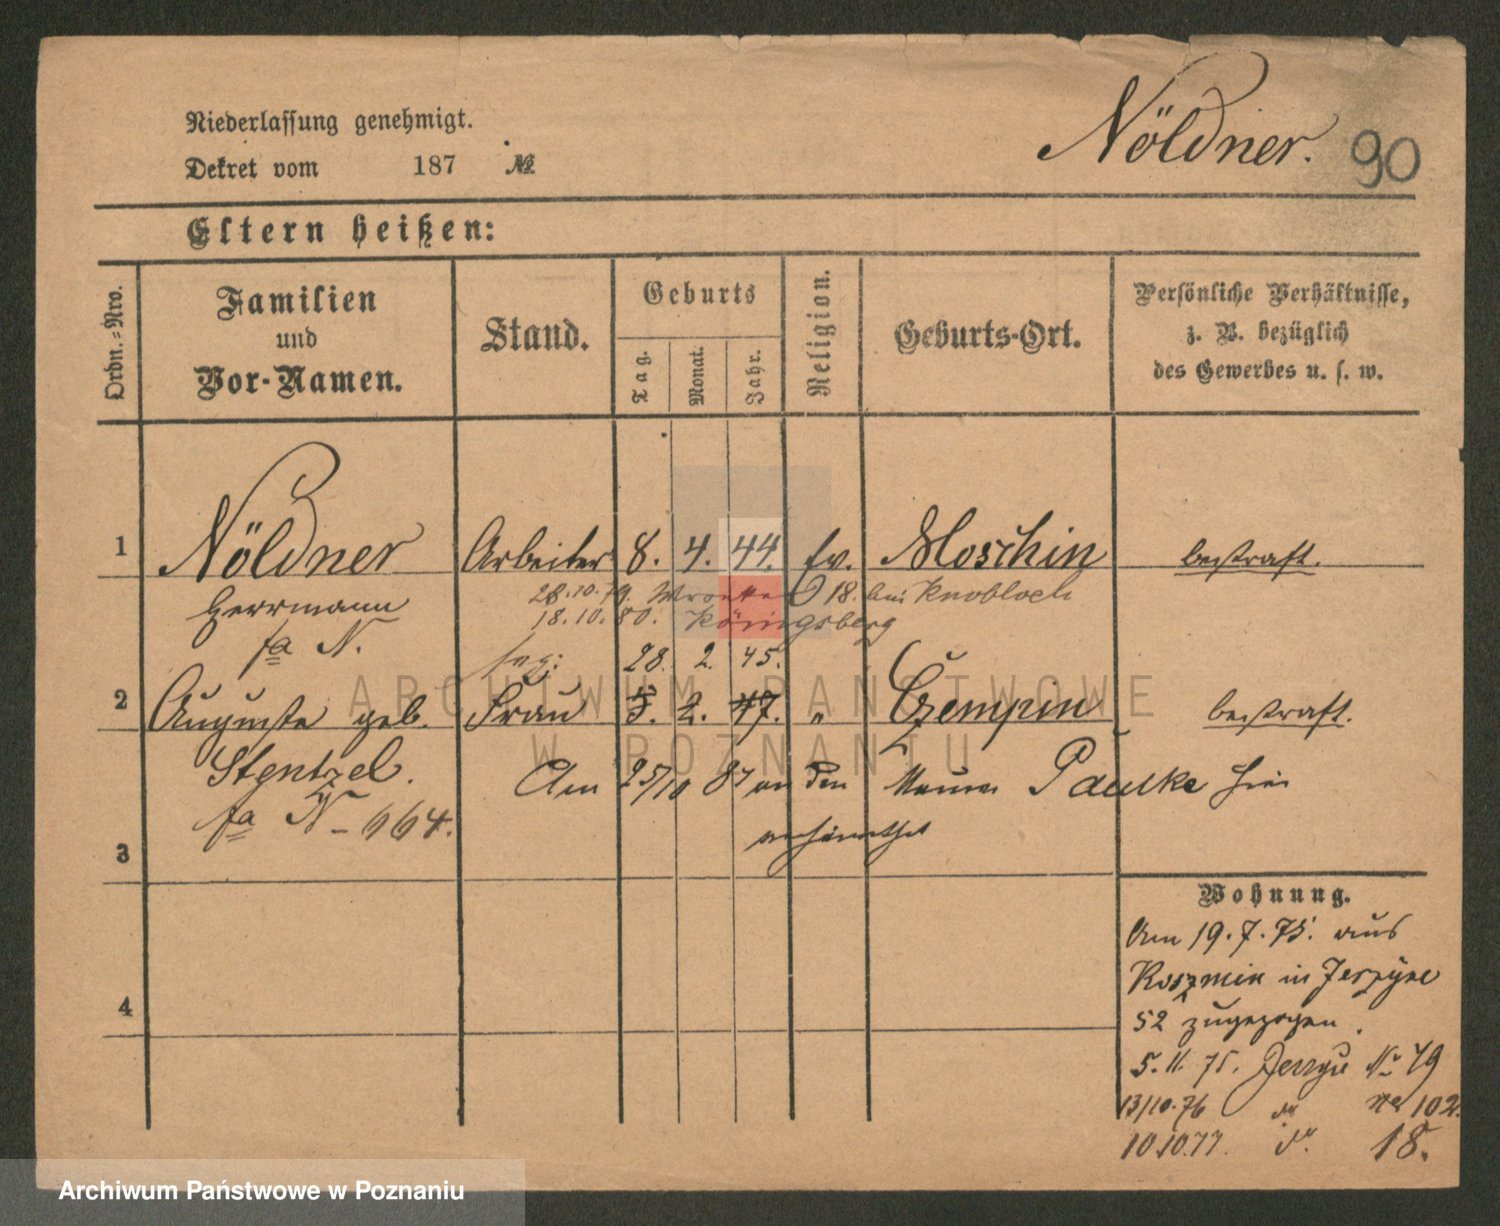 Niederlassung genehmigt.
Dekret vom 187 №
Nöldner. 90
Eltern heißen:
Ordn.=Nro.
Familien
und
Vor-Namen.
Stand.
Geburts
Tag.
Monat.
Jahr.
Religion.
Geburts-Ort.
Persönliche Verhältnisse,
z. B. bezüglich
des Gewerbes u. s. w.
1 Nöldner Arbeiter 8. 4. 44. Ev. Moschin bestraft.
Herrmann 28.10.79. Wronker 18. bei Knobloch
fa N. 18.10.80. Königsberg
28. 2. 45.
2 Auguste geb. Frau 5. 2. 47. " Czempin bestraft.
Stentzel. Am 25/10 87 an den Maurer Paulke hier
fa N - 664. verheirathet
3
4
Wohnung.
Am 19. 7. 75. aus
Kozmin in Jerzyce
52 zugezogen.
5. 11. 75. Jerzyce No 79
13/10.76 do No 102.
10.10.77. do. 18.
ARCHIWUM PAŃSTWOWE
W POZNANIU
Archiwum Państwowe w Poznaniu